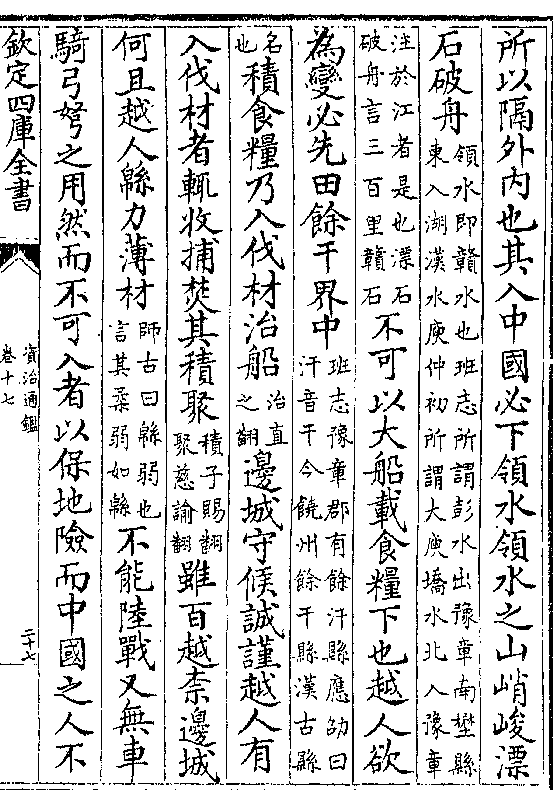 所以隔外内也其入中國必下領水領水之山峭峻漂
石破舟領水即贛水也班志所謂彭水出豫章南壄縣
東入湖漢水庾仲初所謂大庾嶠水北入豫章
注於江者是也漂石
破舟言三百里贛石不可以大船載食糧下也越人欲
為變必先田餘干界中班志豫章郡有餘汗縣應劭曰
汗音干今饒州餘干縣漢古縣
名
也積食糧乃入伐材治船治直
之翻邊城守候誠謹越人有
入伐材者輒收捕焚其積聚積子賜翻
聚慈諭翻雖百越柰邊城
何且越人緜力薄材師古曰緜弱也
言其柔弱如緜不能陸戰又無車
騎弓弩之用然而不可入者以保地險而中國之人不
欽定四庫全書
資治通鑑
卷十七
二十七